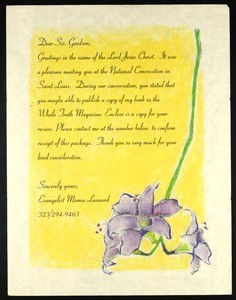 Dear Sis. Goodson,
Greetings in the name of the Lord Jesus Christ. It was
a pleasure meeting you at the National Convocation in
Saint Louis. During our conversation, you stated that
you maybe able to publish a copy of my book in the
Whole Truth Magazine. Enclose is a copy for your
review. Please contact me at the number below to confirm
receipt of this package. Thank you so very much for your
kind consideration.
Sincerely yours,
Evangelist Mamie Leonard
323/294-9463